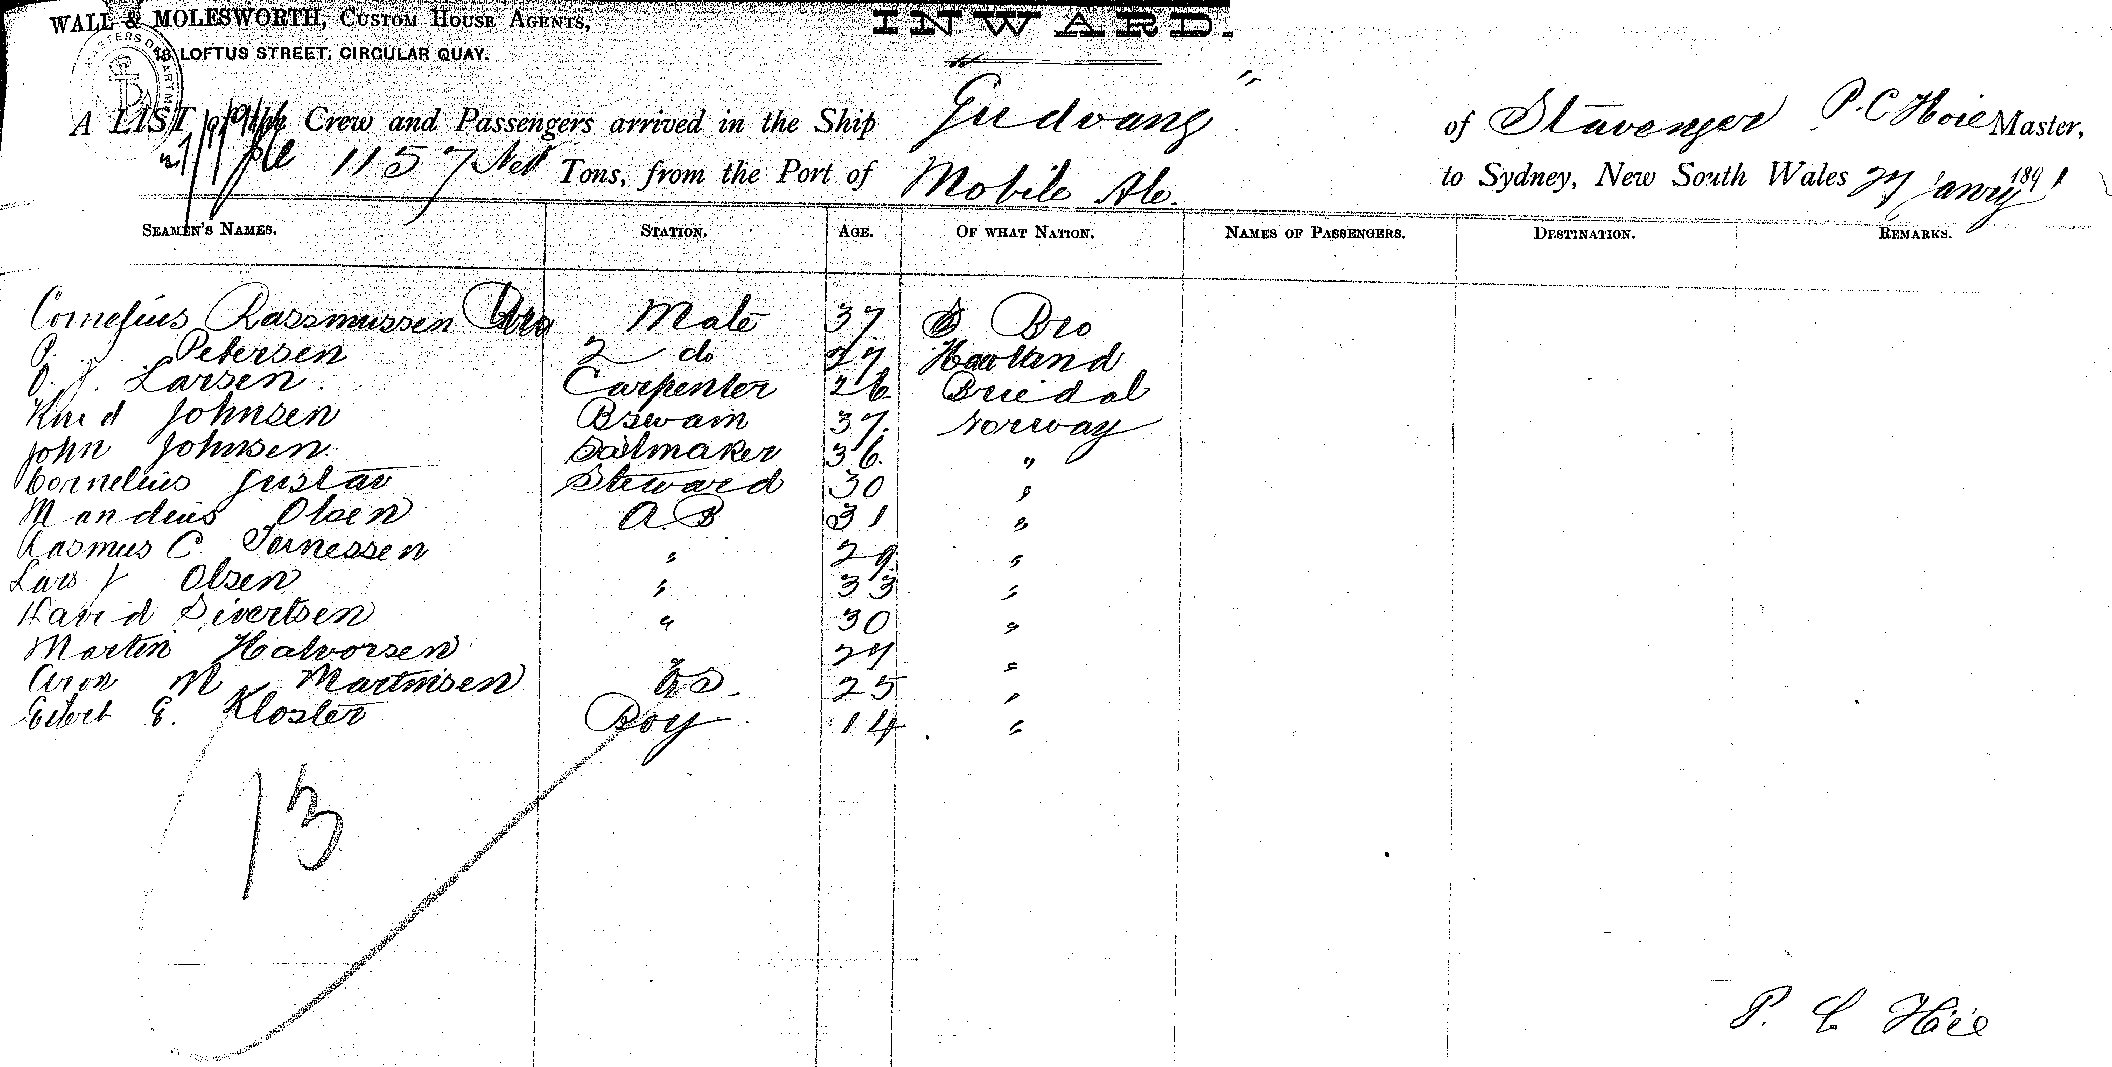 WALL & MOLESWORTH, CUSTOM HOUSE AGENTS,
18 LOFTUS STREET, CIRCULAR QUAY.
INWARD.
A LIST of the Crew and Passengers arrived in the Ship "Gudvang" of Stavenger P. C Hoie Master,
1157 Nett Tons, from the Port of Mobile Ale. to Sydney, New South Wales 27 Janry 1891
SEAMEN'S NAMES. STATION. AGE. OF WHAT NATION. NAMES OF PASSENGERS. DESTINATION. REMARKS.
Cornelius Rassmussen Bro Mate 37 Bro
P. J. Petersen 2 do 27
O. J. Larsen Carpenter 26
Knud Johnsen Bswain 37 Norway
John Johnsen Sailmaker 36 "
Cornelius Gustav Steward 30 "
Mandius Olsen A.B 31 "
Rasmus C. " 29 "
Lars J Olsen " 33 "
Sivertsen " 30 "
Martin Halvorsen 27 "
Aron M Martinsen OS 25 "
E. Kloster Boy 14 "
13
P. C. Hoie